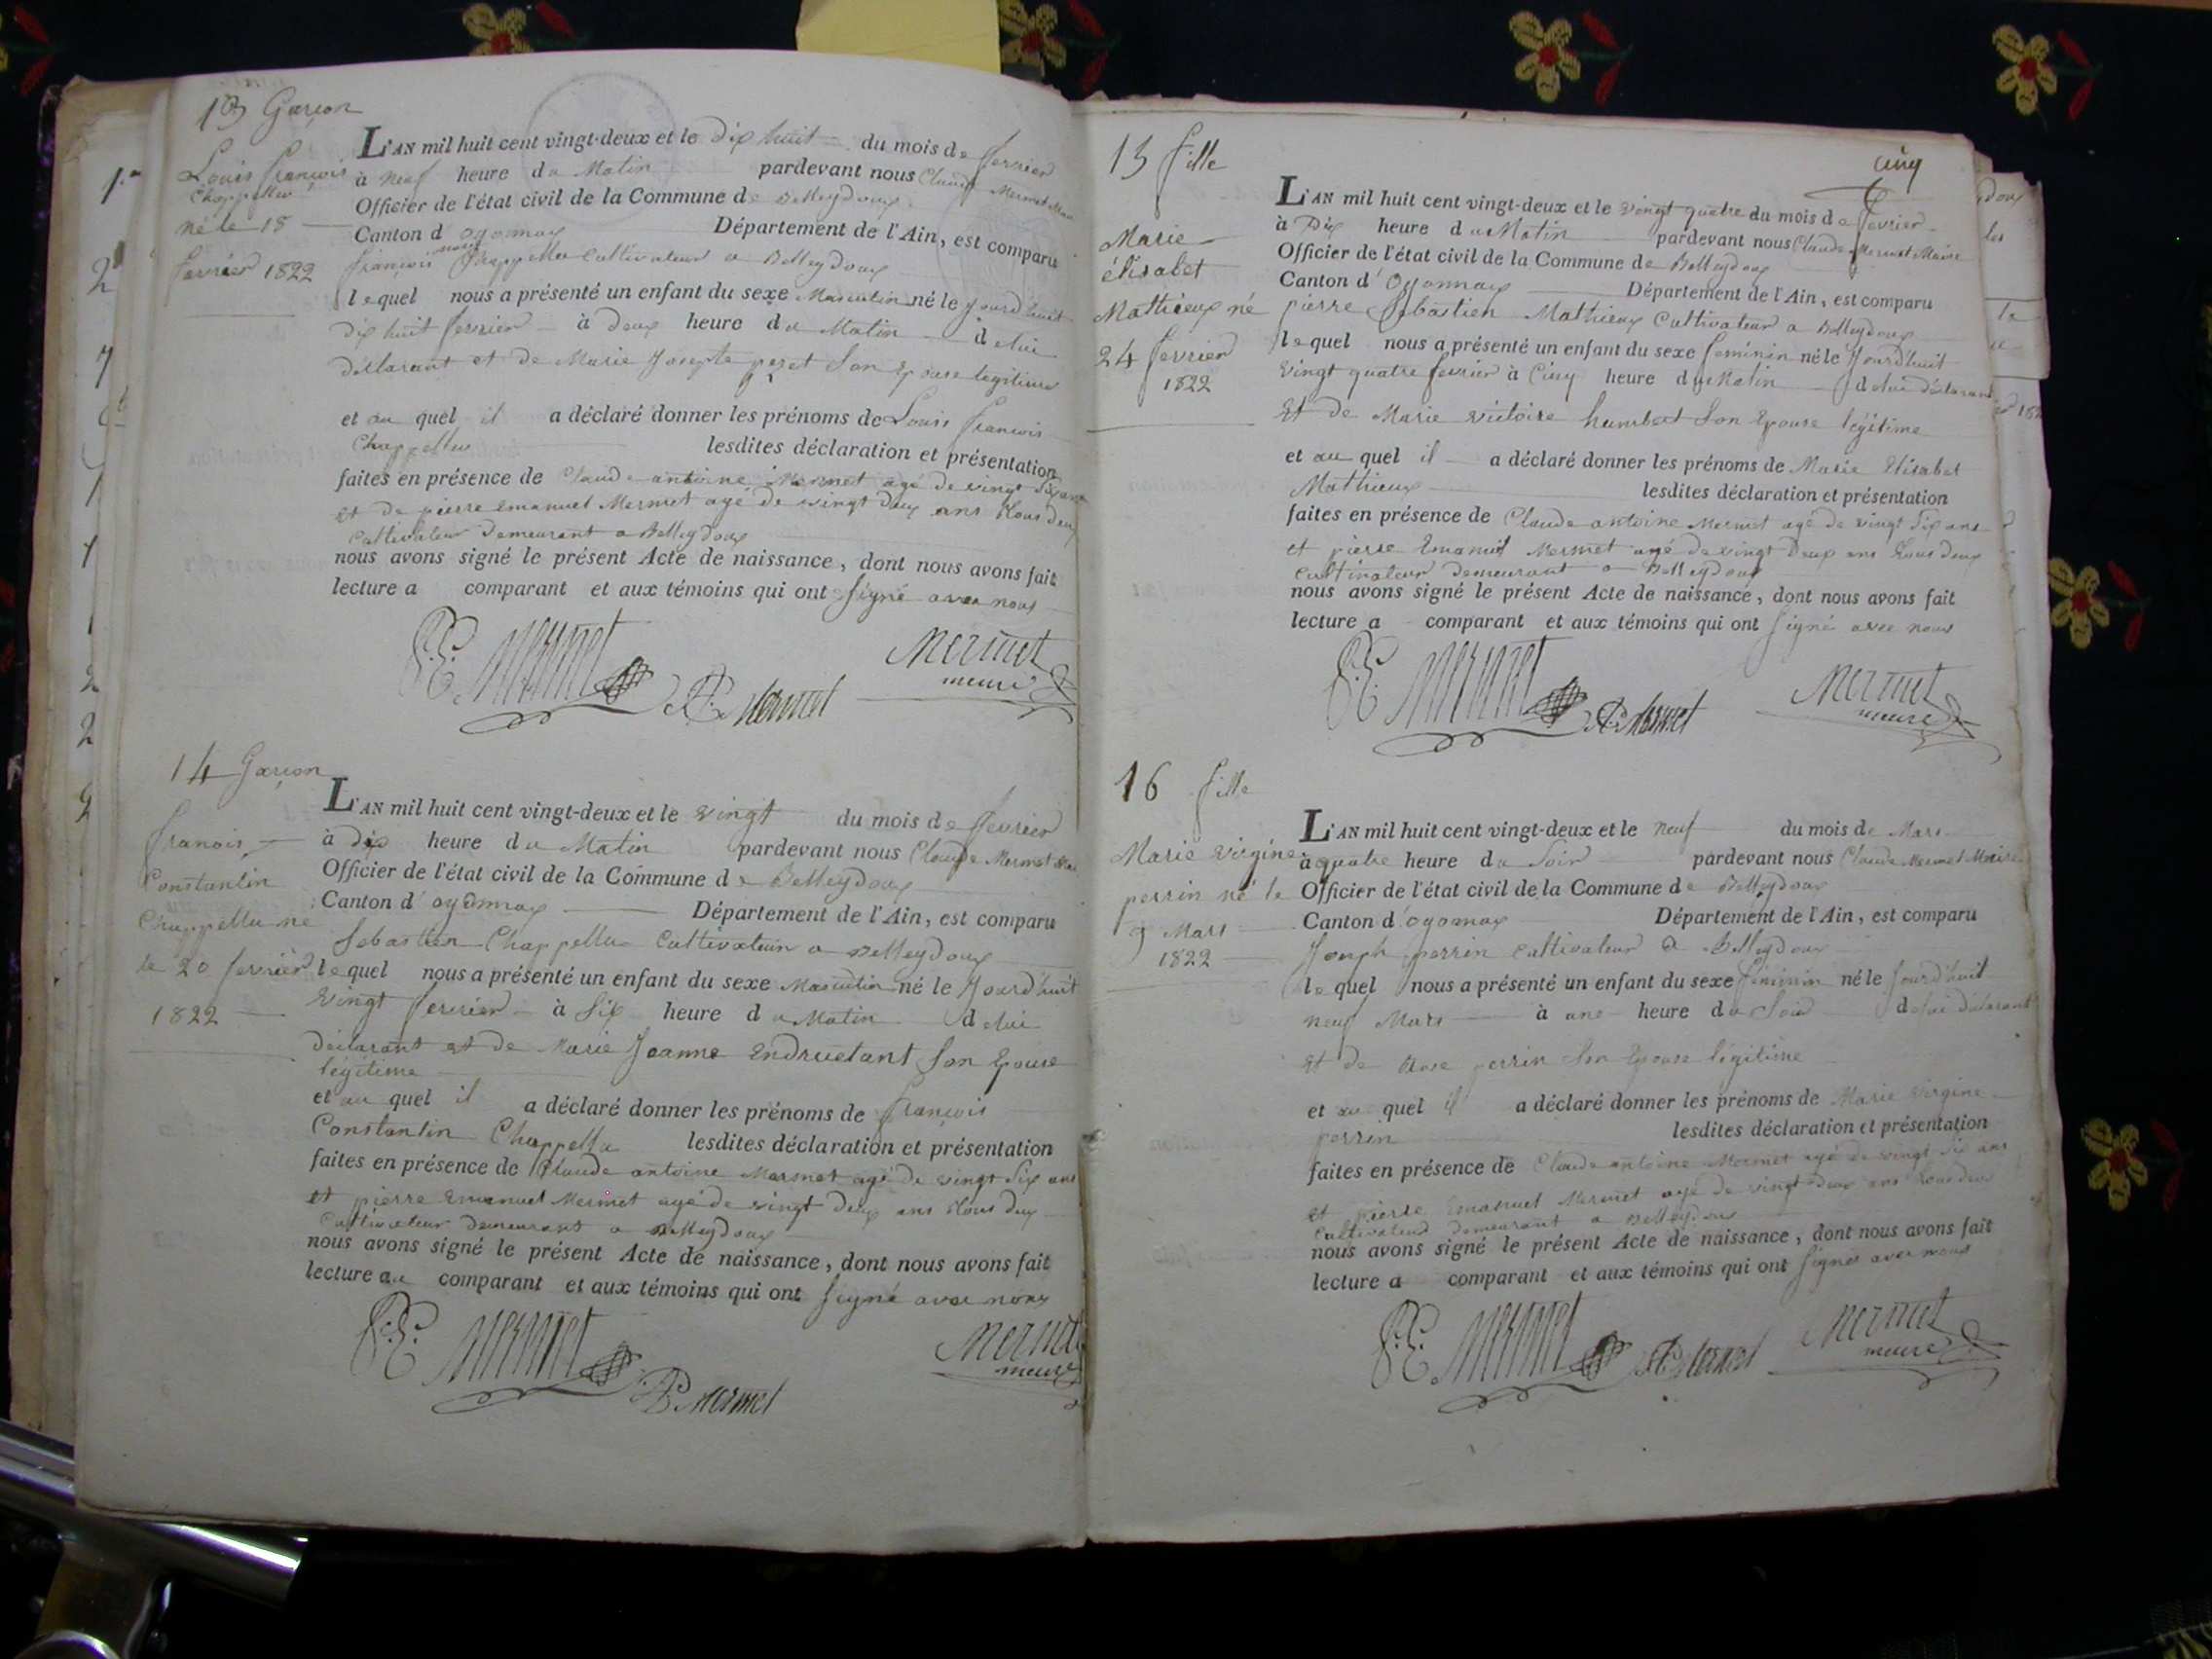 13 Garçon
Louis françois
Chappellu
né le 18
fevrier 1822
L'AN mil huit cent vingt-deux et le dix huit du mois de fevrier
à neuf heure du Matin pardevant nous Claude Mermet Maire
Officier de l'état civil de la Commune de Belleydoux
Canton d oyonnax Département de l'Ain, est comparu
françois marie Chappellu Cultivateur a Belleydoux
lequel nous a présenté un enfant du sexe Masculin né le jourd'huit
dix huit fevrier à deux heure du Matin de lui
déclarant et de Marie Josepte Son Epouse legitime
et au quel il a déclaré donner les prénoms de Louis francois
Chappellu lesdites déclaration et présentation
faites en présence de Claude antoine Mermet agé de vingt Six ans
et de pierre Emanuel Mermet agé de vingt deux ans tous deux
Cultivateur demeurant a Belleydoux
nous avons signé le présent Acte de naissance, dont nous avons fait
lecture a comparant et aux témoins qui ont Signé avec nous
P.E. Mermet
Mermet
meire
A. Mermet
14 Garçon
francois
Constantin
Chappellu né
le 20 fevrier
1822
L'AN mil huit cent vingt-deux et le vingt du mois de fevrier
à dix heure du Matin pardevant nous Claude Mermet
Officier de l'état civil de la Commune de Belleydoux
Canton d'oyonnax Département de l'Ain, est comparu
Sebastien Chappellu Cultivateur a Belleydoux
lequel nous a présenté un enfant du sexe Masculin né le jourd'huit
vingt fevrier à Six heure du Matin de lui
déclarant et de Marie Jeanne Endruetant Son Epouse
légitime
et au quel il a déclaré donner les prénoms de françois
Constantin Chappellu lesdites déclaration et présentation
faites en présence de Claude antoine Mermet agé de vingt Six ans
et pierre Emanuel Mermet agé de vingt deux ans tous deux
Cultivateur demeurant a Belleydoux
nous avons signé le présent Acte de naissance, dont nous avons fait
lecture au comparant et aux témoins qui ont Signé avec nous
P.E. Mermet
Mermet
meire
A. Mermet
cinq
15 fille
Marie
élisabet
Mathieux né
24 fevrier
1822
L'AN mil huit cent vingt-deux et le vingt quatre du mois de fevrier
à Dix heure du Matin pardevant nous Claude Mermet Maire
Officier de l'état civil de la Commune de Belleydoux
Canton d'Oyonnax Département de l'Ain, est comparu
pierre Sebastien Mathieux Cultivateur a Belleydoux
lequel nous a présenté un enfant du sexe feminin né le jourd'huit
vingt quatre fevrier à Cinq heure du Matin de lui déclarant
et de Marie victoire humbert Son Epouse légitime
et au quel il a déclaré donner les prénoms de Marie Elisabet
Mathieux lesdites déclaration et présentation
faites en présence de Claude antoine Mermet agé de vingt Six ans
et pierre Emanuel Mermet agé de vingt Deux ans tous deux
Cultivateur demeurant a Belleydoux
nous avons signé le présent Acte de naissance, dont nous avons fait
lecture a comparant et aux témoins qui ont Signé avec nous
P.E. Mermet
Mermet
meire
A. Mermet
16 fille
Marie virgine
perrin né le
9 Mars
1822
L'AN mil huit cent vingt-deux et le neuf du mois de Mars
à quatre heure du Soir pardevant nous Claude Mermet Maire
Officier de l'état civil de la Commune de Belleydoux
Canton d'oyonnax Département de l'Ain, est comparu
Joseph perrin Cultivateur a Belleydoux
lequel nous a présenté un enfant du sexe féminin né le jourd'huit
neuf Mars à une heure du Soir de lui déclarant
et de Rose perrin Son Epouse légitime
et au quel il a déclaré donner les prénoms de Marie virgine
perrin lesdites déclaration et présentation
faites en présence de Claude antoine Mermet agé de vingt Six ans
et pierre Emanuel Mermet agé de vingt deux ans tous deux
Cultivateur demeurant a Belleydoux
nous avons signé le présent Acte de naissance, dont nous avons fait
lecture a comparant et aux témoins qui ont Signé avec nous
P.E. Mermet
Mermet
meire
A. Mermet